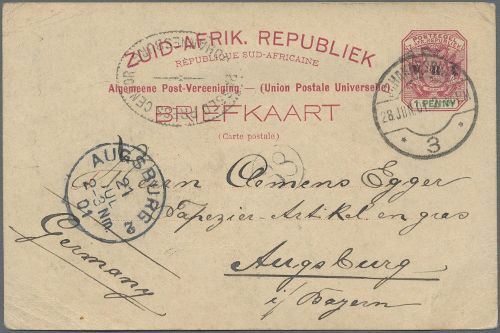 ZUID-AFRIK. REPUBLIEK
RÉPUBLIQUE SUD-AFRICAINE
Algemeene Post-Vereeniging — (Union Postale Universelle)
BRIEFKAART
(Carte postale)
POSTZEGEL
1 PENNY
28 JUN. 01
3
AUGSBURG 2
21
JUL
2-3 NM
01
Clemens Egger
Tapezier-Artikel en gras
Augsburg
i/Bayern
Germany